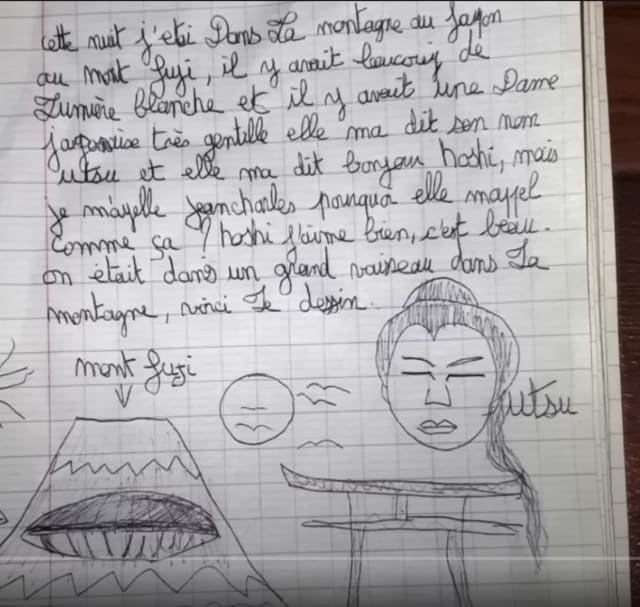 cette nuit j'etai Dans La montagne au Japon
au mont fuji, il y avait beaucoup de
Lumière blanche et il y avait une Dame
japonaise très gentille elle ma dit son nom
utsu et elle ma dit bonjour hoshi, mais
je m'apelle jeancharles pourquoi elle mappel
comme ça ? hoshi j'aime bien, c'est beau.
on était dans un grand vaiseau dans La
montagne, voici Le dessin.
mont fuji
utsu